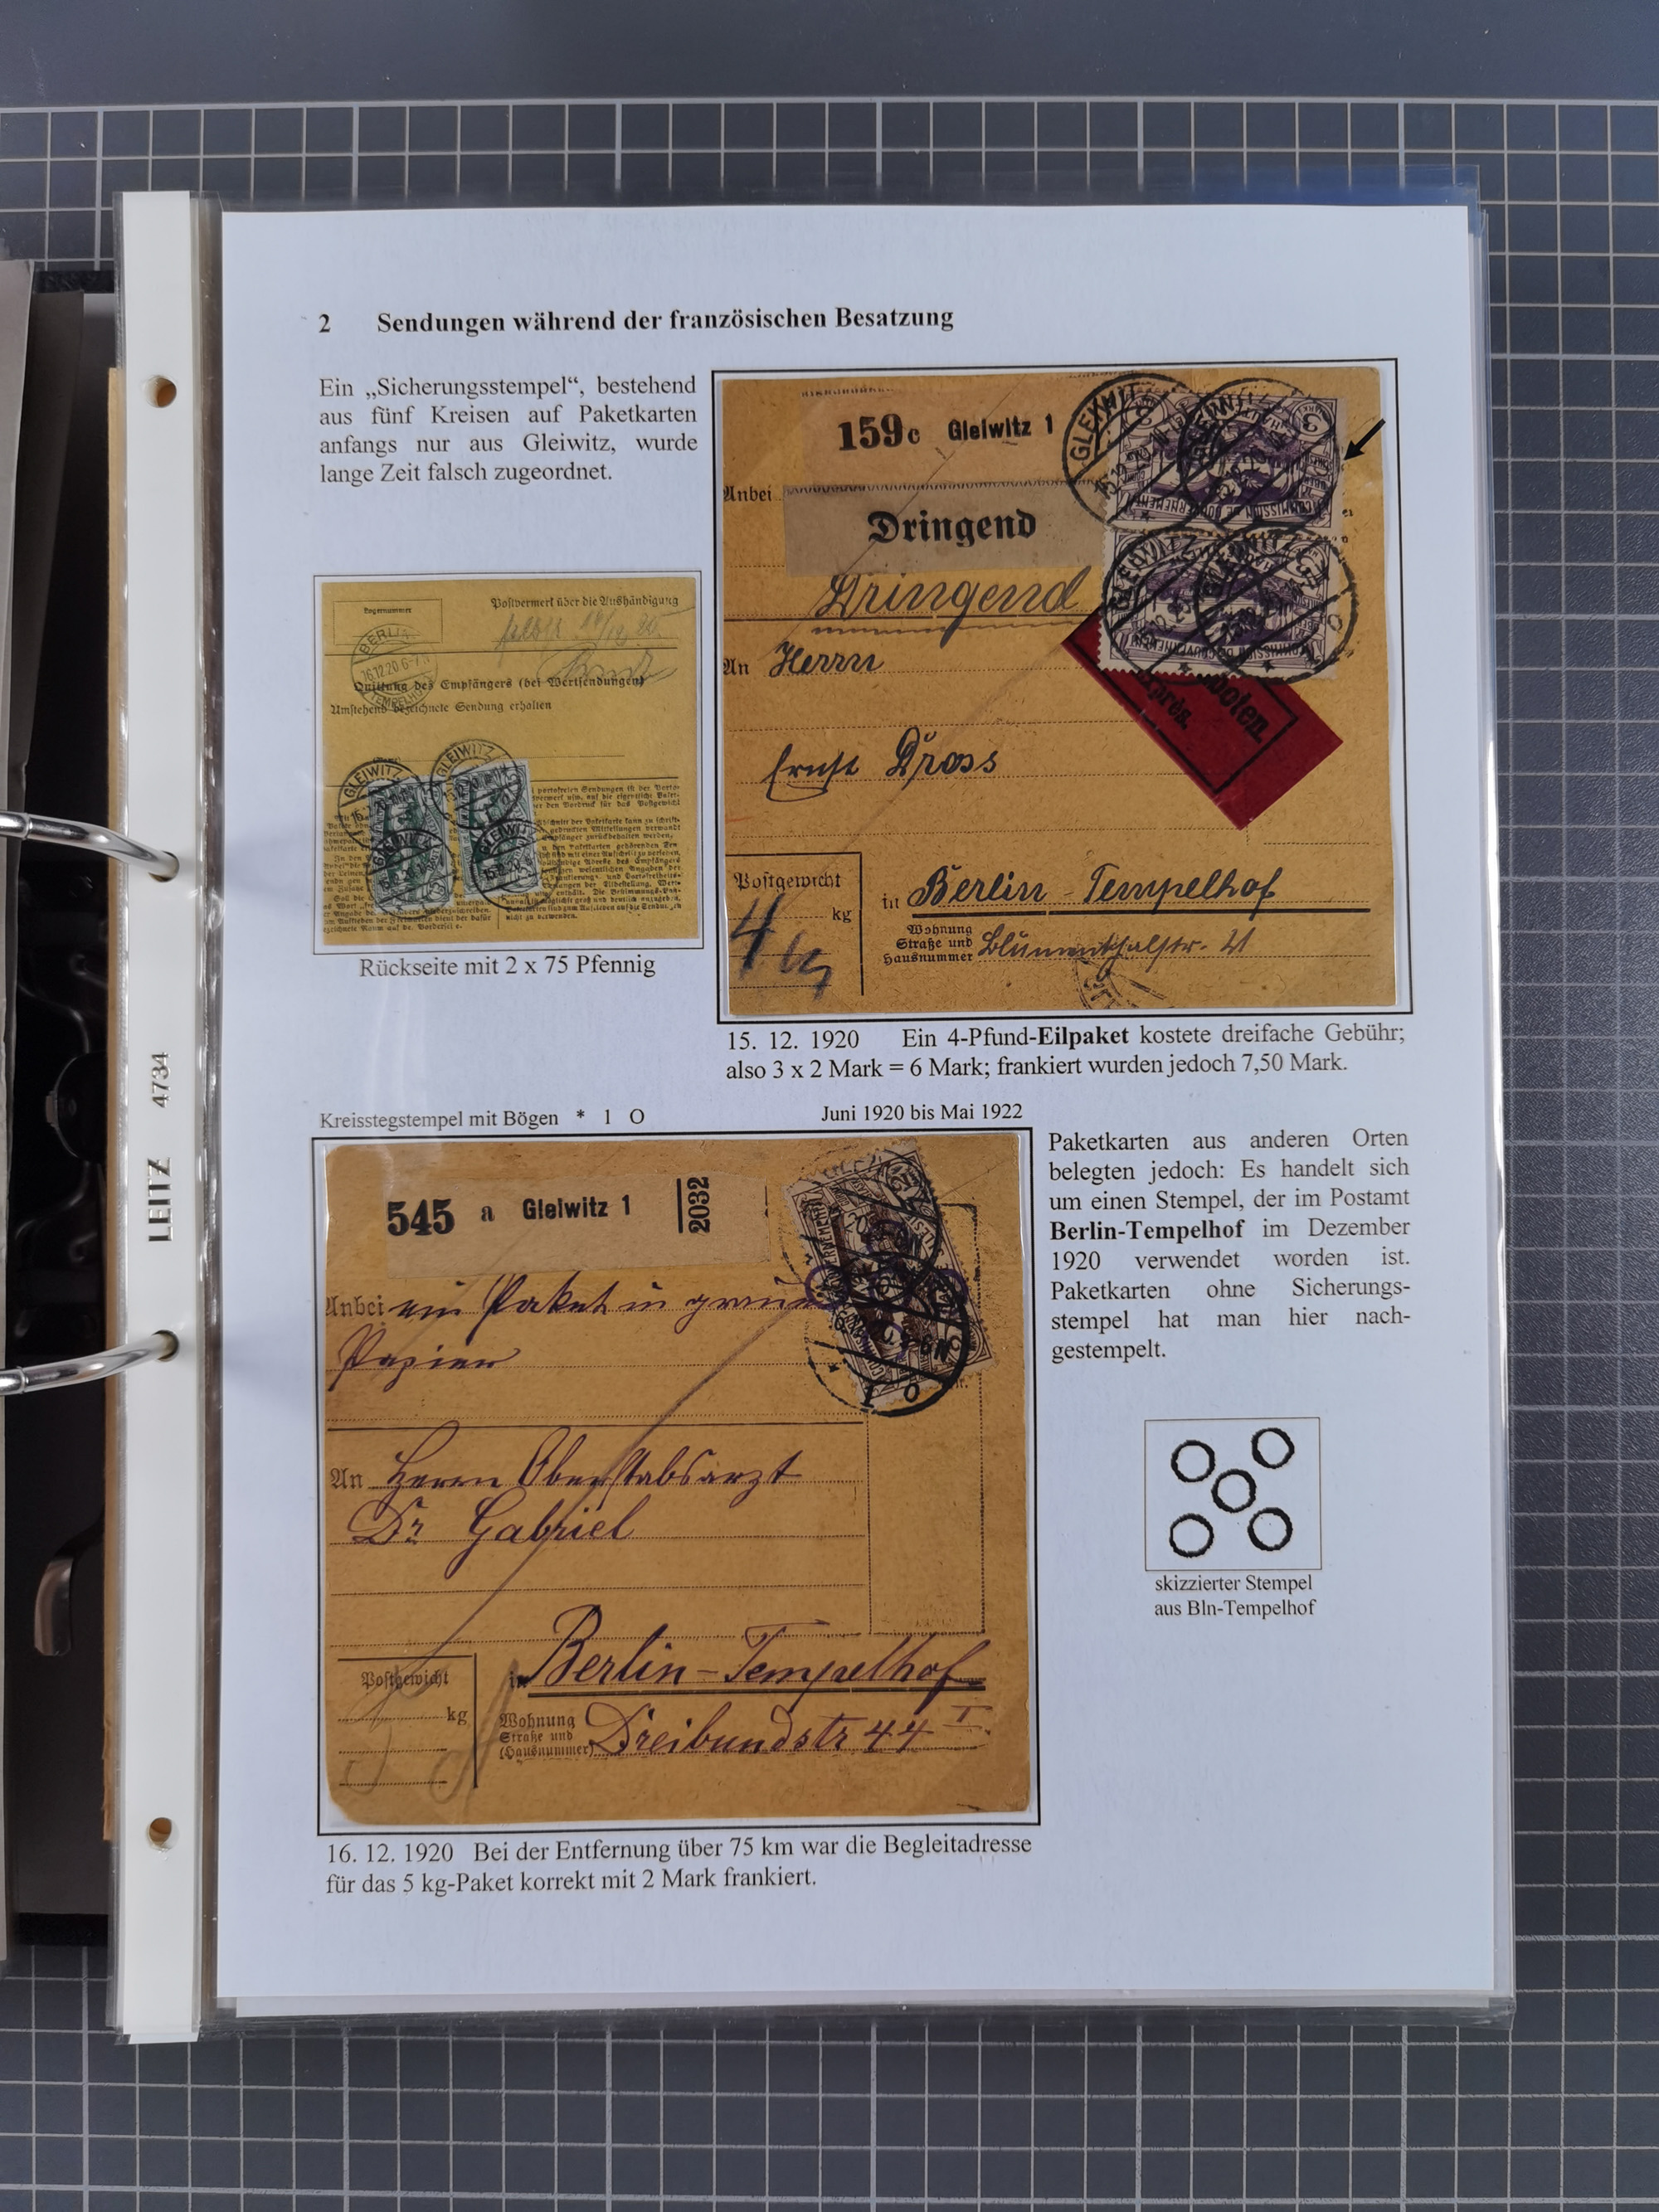 2 Sendungen während der französischen Besatzung
Ein „Sicherungsstempel“, bestehend
aus fünf Kreisen auf Paketkarten
anfangs nur aus Gleiwitz, wurde
lange Zeit falsch zugeordnet.
159c Gleiwitz 1
Anbei
Dringend
Dringend
An Herrn
Ernst Dross
Postgewicht
4 kg
in Berlin-Tempelhof
Wohnung
Straße und
Hausnummer
GLEIWITZ
COMMISSION DE GOUVERNEMENT
boten
Lagernummer
Postvermerk über die Aushändigung
BERLIN
16.12.20.6-7N
TEMPELHOF
Quittung des Empfängers (bei Wertsendungen)
Umstehend bezeichnete Sendung erhalten
GLEIWITZ
GLEIWITZ
Rückseite mit 2 x 75 Pfennig
15. 12. 1920 Ein 4-Pfund-Eilpaket kostete dreifache Gebühr;
also 3 x 2 Mark = 6 Mark; frankiert wurden jedoch 7,50 Mark.
Kreisstegstempel mit Bögen * 1 O Juni 1920 bis Mai 1922
545 a Gleiwitz 1 2032
Anbei ein Paket in
Papier
An Herrn Oberstabsarzt
Dr Gabriel
in Berlin-Tempelhof
Postgewicht
kg
Wohnung
Straße und
(Hausnummer) Dreibundstr 44 I
Paketkarten aus anderen Orten
belegten jedoch: Es handelt sich
um einen Stempel, der im Postamt
Berlin-Tempelhof im Dezember
1920 verwendet worden ist.
Paketkarten ohne Sicherungs-
stempel hat man hier nach-
gestempelt.
skizzierter Stempel
aus Bln-Tempelhof
16. 12. 1920 Bei der Entfernung über 75 km war die Begleitadresse
für das 5 kg-Paket korrekt mit 2 Mark frankiert.
LEITZ 4734